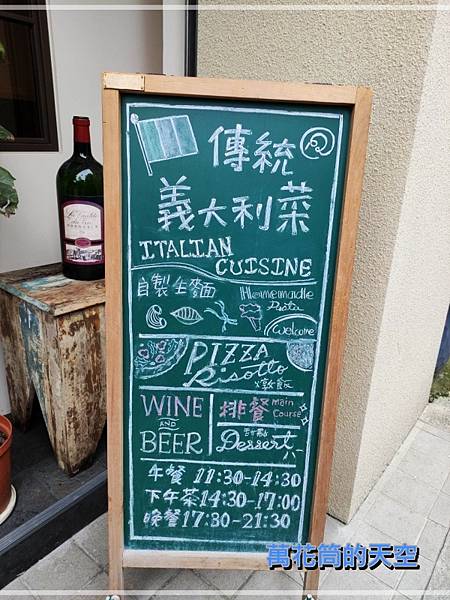 傳統
義大利菜
ITALIAN
CUISINE
自製生麵
Homemade
Pasta
Welcome
PIZZA
Risotto
燉飯
WINE
AND
BEER
排餐
main
Course
甜點
Dessert
午餐 11:30-14:30
下午茶14:30-17:00
晚餐17:30-21:30
萬花筒的天空